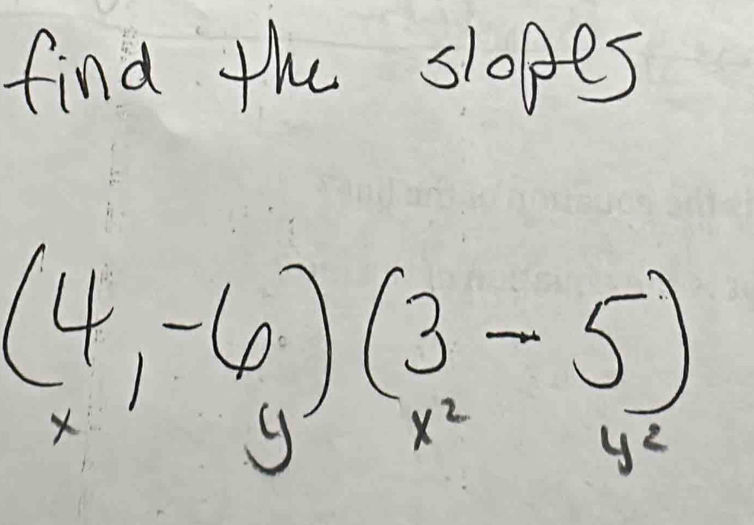 find the slopes
(4, -6) (3 - 5)
x y x² y²